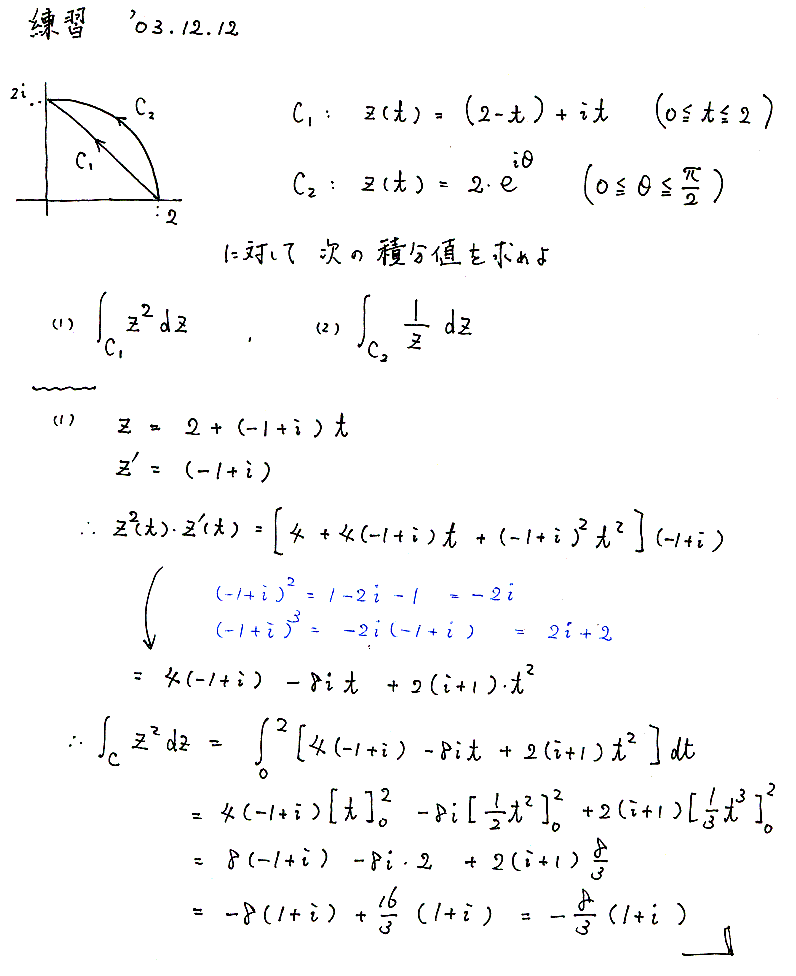 練習 '03.12.12
2i
C₂
C₁
2
C₁ : z(t) = (2-t) + it (0 ≦ t ≦ 2)
C₂ : z(t) = 2・e^{iθ} (0 ≦ θ ≦ π/2)
に対して 次の 積分値を求めよ
(1) ∫_{C₁} z² dz , (2) ∫_{C₂} 1/z dz
(1) z = 2 + (-1+i)t
z' = (-1+i)
∴ z²(t)・z'(t) = [4 + 4(-1+i)t + (-1+i)² t²](-1+i)
(-1+i)² = 1-2i-1 = -2i
(-1+i)³ = -2i(-1+i) = 2i+2
= 4(-1+i) - 8it + 2(i+1)・t²
∴ ∫_C z² dz = ∫_0^2 [4(-1+i) - 8it + 2(i+1)t²] dt
= 4(-1+i)[t]_0^2 - 8i[1/2 t²]_0^2 + 2(i+1)[1/3 t³]_0^2
= 8(-1+i) - 8i・2 + 2(i+1) 8/3
= -8(1+i) + 16/3 (1+i) = -8/3 (1+i)